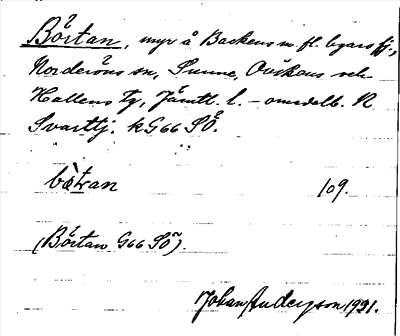 Börtan, myr å Backens m. fl. byars fj.,
Norderöns sn, Sunne, Ovikens och
Hallens tg, Jämtl. l. – omedelb. N
Svarttj. k G66 SÖ.
bòtran 109.
(Börtan G66 SÖ).
Johan Anderson 1931.